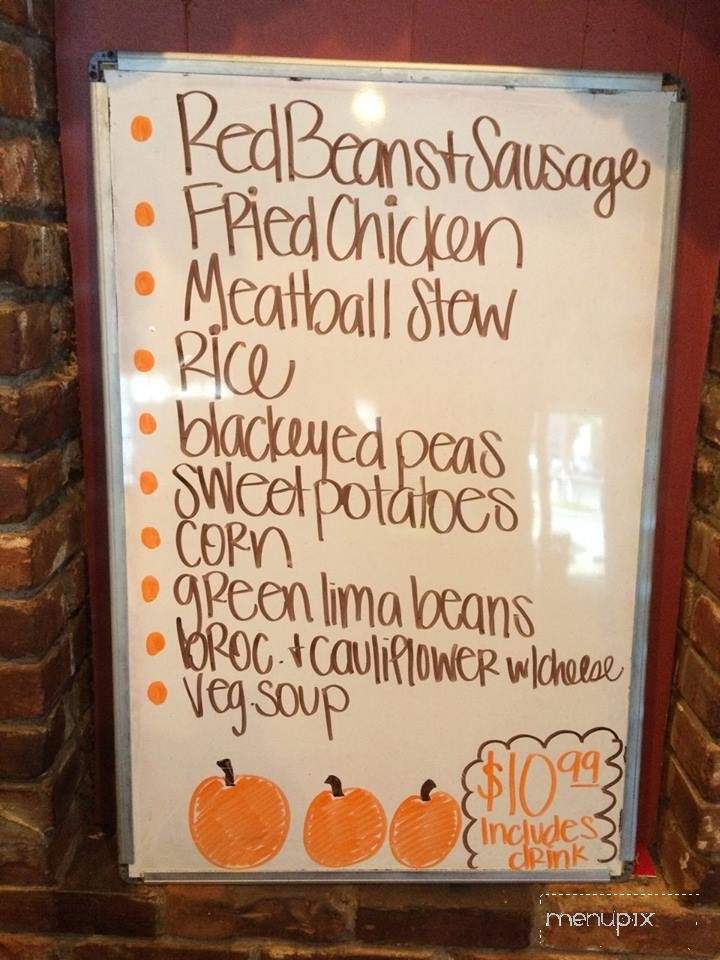 Red Beans + Sausage
Fried Chicken
Meatball Stew
Rice
blackeyed peas
sweet potatoes
corn
green lima beans
broc. + cauliflower w/cheese
veg. soup
$10.99
Includes
drink
menupix